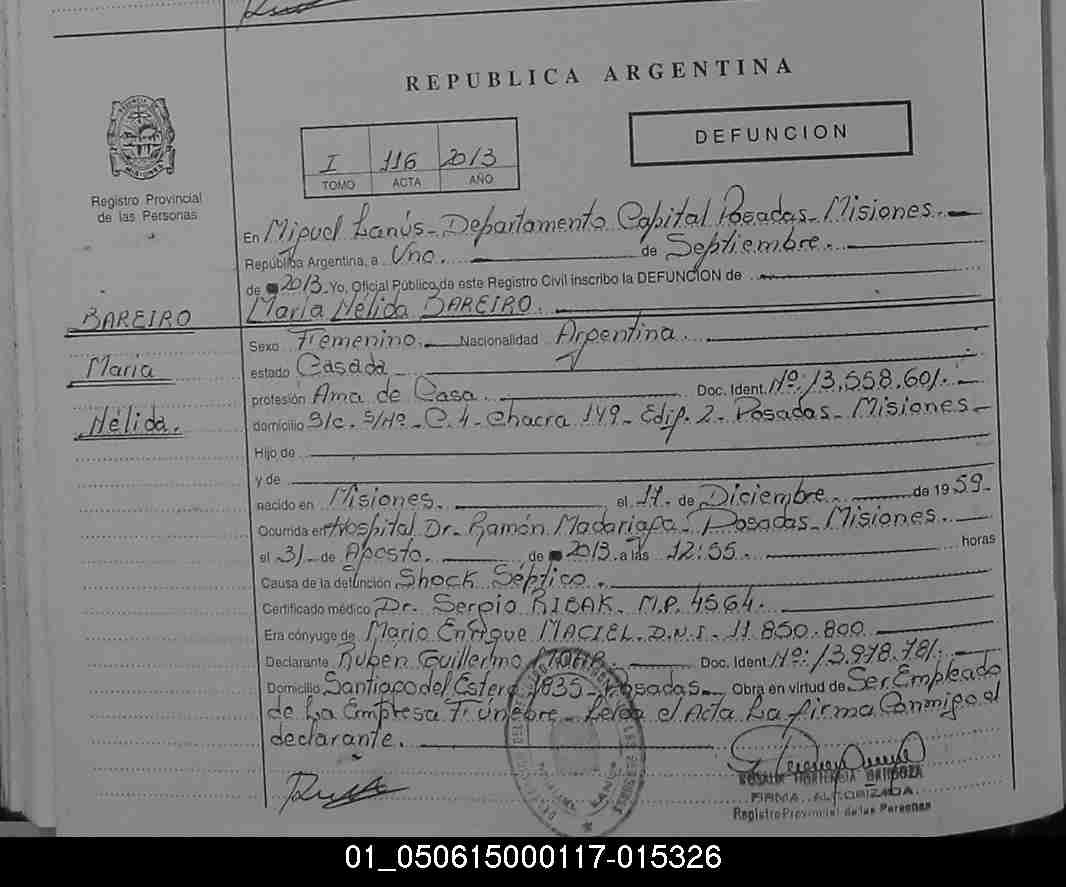 REPUBLICA ARGENTINA
DEFUNCION
I 116 2013
TOMO ACTA AÑO
Registro Provincial
de las Personas
En Miguel Lanús - Departamento Capital Posadas - Misiones.
República Argentina, a Uno. de Septiembre.
de 2013. Yo, Oficial Público de este Registro Civil inscribo la DEFUNCION de
María Nélida BAREIRO.
BAREIRO
María
Nélida.
Sexo Femenino. Nacionalidad Argentina.
estado Casada
profesión Ama de Casa. Doc. Ident. Nº: 13.558.601.
domicilio S/c. S/Nº - C. 4 - Chacra 149 - Edif. 2 - Posadas - Misiones -
Hijo de
y de
nacido en Misiones. el 11 - de Diciembre. de 1959.
Ocurrida en Hospital Dr. Ramón Madariaga - Posadas - Misiones.
el 31 - de Agosto. de 2013. a las 12:55. horas
Causa de la defunción Shock Séptico.
Certificado médico Dr. Sergio RIBAK. M.P. 4564.
Era cónyuge de Mario Enrique MACIEL. D.N.I. 11.850.800.
Declarante Ruben Guillermo Doc. Ident. Nº: 13.978.781.
Domicilio Santiago del Estero 1835 - Posadas. Obra en virtud de Ser Empleado
de La Empresa Fúnebre - Leída el Acta La firma Conmigo el
declarante.
FIRMA AUTORIZADA
Registro Provincial de las Personas
01_050615000117-015326